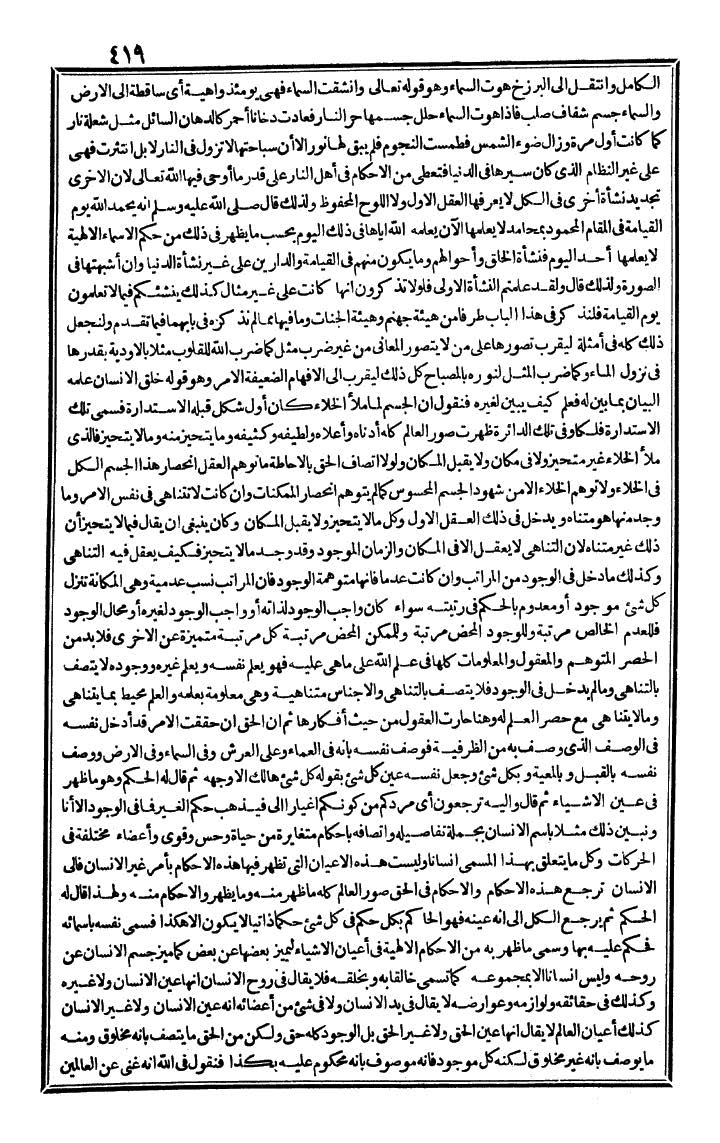 ٤١٩
الكامل وانتقل الى البرزخ هوت السماء وهو قوله تعالى وانشقت السماء فهى يومئذ واهية أى ساقطة الى الارض
والسماء جسم شفاف صلب فاذا هوت السماء حلل جسمها حر النار فعادت دخانا أحمر كالدهان السائل مثل شعلة نار
كما كانت أول مرة وزال ضوء الشمس فطمست النجوم فلم يبق لها نور الا أن سباحتها لا تزول فى النار لا بل انتثرت فهى
على غير النظام الذى كان سيرها فى الدنيا فتعطى من الاحكام فى أهل النار على قدر ما أوحى فيها الله تعالى لان الاخرى
تجديد نشأة أخرى فى الكل لا يعرفها العقل الاول ولا اللوح المحفوظ ولذلك قال صلى الله عليه وسلم انه يحمد الله يوم
القيامة فى المقام المحمود بمحامد لا يعلمها الآن يعلمه الله اياها فى ذلك اليوم بحسب ما يظهر فى ذلك من حكم الاسماء الالهية
لا يعلمها أحد اليوم فنشأة الخلق وأحوالهم وما يكون منهم فى القيامة والدارين على غير نشأة الدنيا وان أشبهتها فى
الصورة ولذلك قال ولقد علمتم النشأة الاولى فلولا تذكرون انها كانت على غير مثال كذلك ينشئكم فيما لا تعلمون
يوم القيامة فلنذكر فى هذا الباب طرفا من هيئة جهنم وهيئة الجنات وما فيها مما لم نذكره فى بابهما فيما تقدم ولنجعل
ذلك كله فى أمثلة ليقرب تصورها على من لا يتصور المعانى من غير ضرب مثل كما ضرب الله للقلوب مثلا بالاودية بقدرها
فى نزول الماء وكما ضرب المثل لنوره بالمصباح كل ذلك ليقرب الى الافهام الضعيفة الامر وهو قوله خلق الانسان علمه
البيان بما بين له فعلم كيف يبين لغيره فنقول ان الجسم لما ملأ الخلاء كان أول شكل قبله الاستدارة فسمى تلك
الاستدارة فلكا وفى تلك الدائرة ظهرت صور العالم كله أدناه وأعلاه ولطيفه وكثيفه وما يتحيز منه وما لا يتحيز فالذى
ملأ الخلاء غير متحيز ولا فى مكان ولا يقبل المكان ولولا اتصاف الحق بالاحاطة ما توهم العقل انحصار هذا الجسم الكل
فى الخلاء ولا توهم الخلاء الا من شهود الجسم المحسوس كما لم يتوهم انحصار الممكنات وان كانت لا تتناهى فى نفس الامر وما
وجد منها هو متناه ويدخل فى ذلك العقل الاول وكل ما لا يتحيز ولا يقبل المكان وكان ينبغى ان يقال فيما لا يتحيز أن
ذلك غير متناه لان التناهى لا يعقل الا فى المكان والزمان الموجود وقد وجد ما لا يتحيز فكيف يعقل فيه التناهى
وكذلك ما دخل فى الوجود من المراتب وان كانت عدما فانها متوهمة الوجود فان المراتب نسب عدمية وهى المكانة تنزل
كل شئ موجود أو معدوم بالحكم فى رتبته سواء كان واجب الوجود لذاته أو واجب الوجود لغيره أو محال الوجود
فللعدم الخالص مرتبة وللوجود المحض مرتبة وللممكن المحض مرتبة كل مرتبة متميزة عن الاخرى فلا بد من
الحصر المتوهم والمعقول والمعلومات كلها فى علم الله على ما هى عليه فهو يعلم نفسه ويعلم غيره ووجوده لا يتصف
بالتناهى وما لم يدخل فى الوجود فلا يتصف بالتناهى والاجناس متناهية وهى معلومة بعلمه والعلم محيط بما يتناهى
وما لا يتناهى مع حصر العلم له وهنا حارت العقول من حيث أفكارها ثم ان الحق ان حققت الامر قد أدخل نفسه
فى الوصف الذى وصف به من الظرفية فوصف نفسه بانه فى العماء وعلى العرش وفى السماء وفى الارض ووصف
نفسه بالقبل وبالمعية وبكل شئ وجعل نفسه عين كل شئ بقوله كل شئ هالك الا وجهه ثم قال له الحكم وهو ما ظهر
فى عين الاشياء ثم قال واليه ترجعون أى مردكم من كونكم اغيارا الى فيذهب حكم الغير فما فى الوجود الا أنا
ونبين ذلك مثلا باسم الانسان بجملة تفاصيله واتصافه باحكام متغايرة من حياة وحس وقوى وأعضاء مختلفة فى
الحركات وكل ما يتعلق بهذا المسمى انسانا وليست هذه الاعيان التى تظهر فيها هذه الاحكام بأمر غير الانسان فالى
الانسان ترجع هذه الاحكام والاحكام فى الحق صور العالم كله ما ظهر منه وما يظهر والاحكام منه ولهذا قال له
الحكم ثم يرجع الكل الى انه عينه فهو الحاكم بكل حكم فى كل شئ حكما ذاتيا لا يكون الا هكذا فسمى نفسه باسمائه
فحكم عليه بها وسمى ما ظهر به من الاحكام الالهية فى أعيان الاشياء ليميز بعضها عن بعض كما ميز جسم الانسان عن
روحه وليس انسانا الا بمجموعه كما تسمى خالقا به وبخلقه فلا يقال فى روح الانسان انها عين الانسان ولا غيره
وكذلك فى حقائقه ولوازمه وعوارضه لا يقال فى يد الانسان ولا فى شئ من أعضائه انه عين الانسان ولا غير الانسان
كذلك أعيان العالم لا يقال انها عين الحق ولا غير الحق بل الوجود كله حق ولكن من الحق ما يتصف بانه مخلوق ومنه
ما يوصف بانه غير مخلوق لكنه كل موجود فانه موصوف بانه محكوم عليه بكذا فنقول فى الله انه غنى عن العالمين